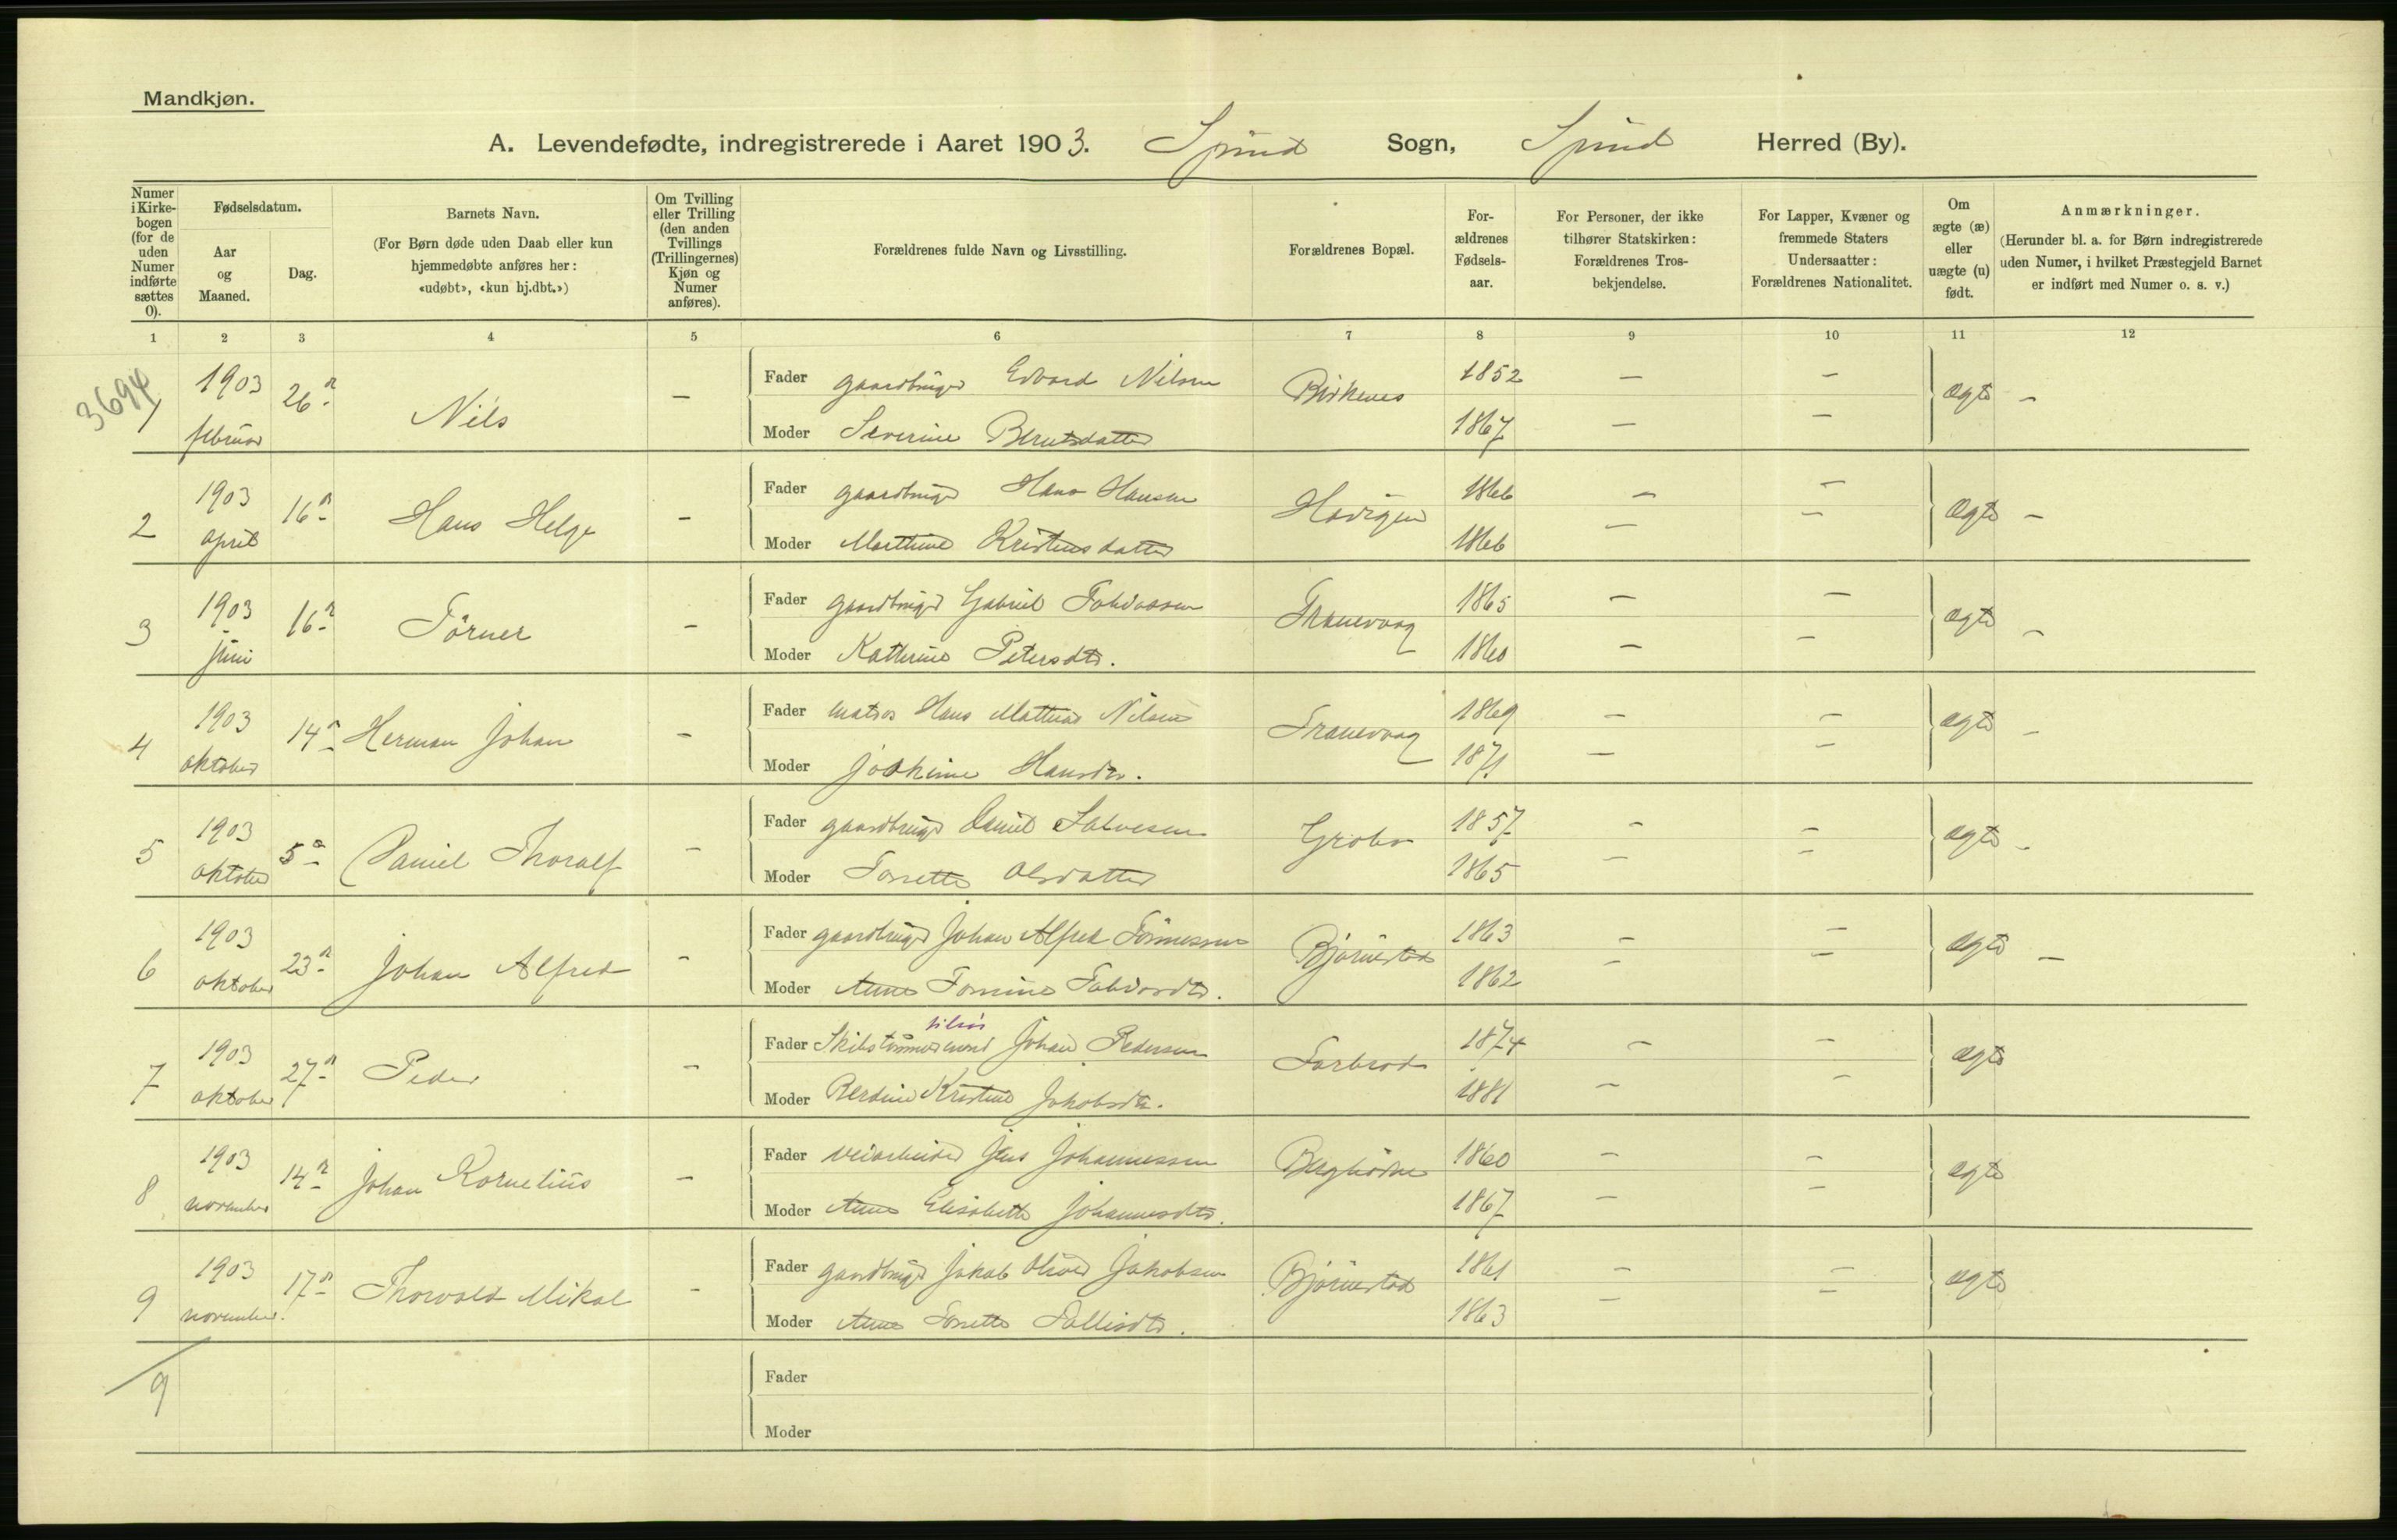 Mandkjøn.
A. Levendefødte, indregistrerede i Aaret 1903. Spind Sogn, Spind Herred (By).
Numer i Kirkebogen (for de uden Numer indførte sættes 0).
Fødselsdatum.
Aar og Maaned.
Dag.
Barnets Navn.
(For Børn døde uden Daab eller kun hjemmedøbte anføres her: «udøbt», «kun hj.dbt.»)
Om Tvilling eller Trilling (den anden Tvillings (Trillingernes) Kjøn og Numer anføres).
Forældrenes fulde Navn og Livsstilling.
Forældrenes Bopæl.
Forældrenes Fødselsaar.
For Personer, der ikke tilhører Statskirken: Forældrenes Trosbekjendelse.
For Lapper, Kvæner og fremmede Staters Undersaatter: Forældrenes Nationalitet.
Om ægte (æ) eller uægte (u) født.
Anmærkninger.
(Herunder bl. a. for Børn indregistrerede uden Numer, i hvilket Præstegjeld Barnet er indført med Numer o. s. v.)
1 2 3 4 5 6 7 8 9 10 11 12
3694
1 1903 februar 26 Nils – Fader gaardbruger Edvard Nilsen Birkenes 1852 – – ægte –
Moder Severine Berntsdatter 1867 – –
2 1903 april 16 Hans Helge – Fader gaardbruger Hans Hansen 1866 – – ægte –
Moder Marthine Kristensdatter 1866 – –
3 1903 juni 16 Törner – Fader gaardbruger Gabriel Tranevaag 1865 – – ægte –
Moder Kathrine Petersdtr. 1860 – –
4 1903 oktober 14 Herman Johan – Fader matros Hans Mathias Nilsen Tranevaag 1869 – – ægte –
Moder Joakime Hansdtr. 1871 – –
5 1903 oktober 5 Daniel Thoralf – Fader gaardbruger Daniel Salvesen 1857 – – ægte –
Moder Torrette Olsdatter 1865 – –
6 1903 oktober 23 Johan Alfred – Fader gaardbruger Johan Alfred Tönnessen Björnestad 1863 – – ægte –
Moder Anne 1862 – –
7 1903 oktober 27 Peder – Fader Skibstömmermand Johan Pedersen 1874 – – ægte
Moder Berdine Kristine Jakobsdtr. 1881 – –
8 1903 november 14 Johan Kornelius – Fader veiarbeider Jens Johannessen 1860 – – ægte
Moder Anne Elisabeth Johannesdtr. 1867 – –
9 1903 november. 17 Thorvald Mikal – Fader gaardbruger Jakob Oliver Jakobsen Björnestad 1861 – – ægte
Moder Anne Torrette 1863 – –
9 Fader
Moder